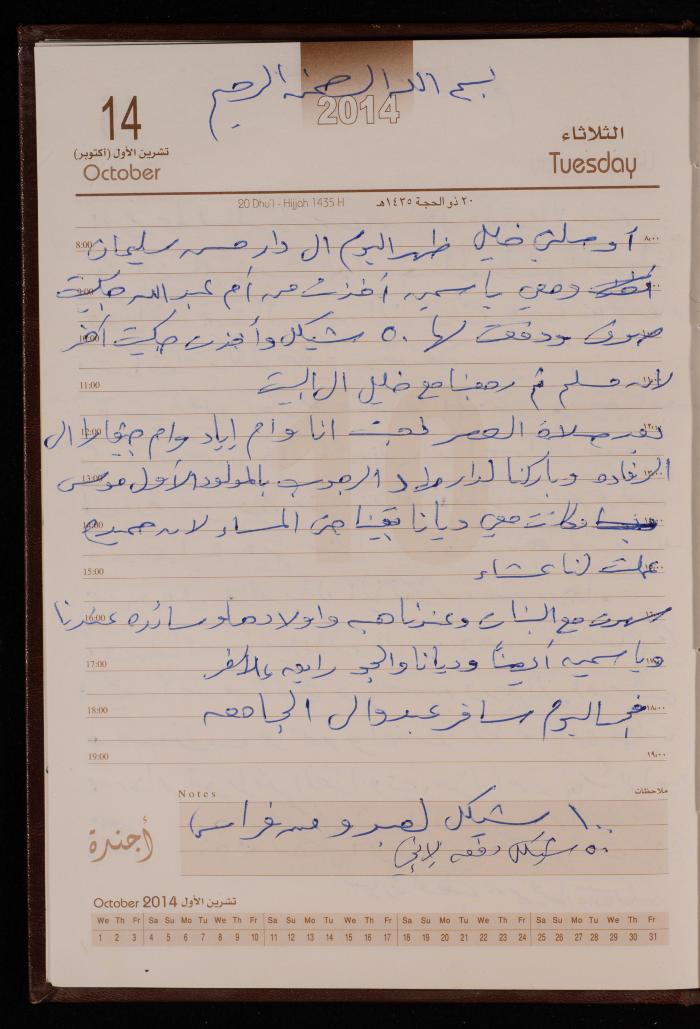 بسم الله الرحمن الرحيم
2014
14
تشرين الأول (أكتوبر)
October
الثلاثاء
Tuesday
20 Dhu'l - Hijjah 1435 H
٢٠ ذو الحجة ١٤٣٥هـ
8:00 أوصلني خليل ظهر اليوم الى دار حسن سليمان ٨:٠٠
9:00 ومعي ياسمين أخذت من أم عبد الله جكيت
صوف ودفعت لها ٥٠ شيكل وأخذت جكيت أخر
11:00 لابن مسلم ثم رجعنا مع خليل الى البيت
12:00 بعد صلاة العصر ذهبت انا وام إياد وام الى
13:00 وباركنا لدار الرجوب بالمولود الأول موسى
14:00 وكانت معي ديانا بقينا حتى المساء لان
15:00 عملت لنا عشاء
16:00 سهرت مع البنات وعندنا هبه واولادها وسائده عندنا
17:00 وياسمين أيضاً وديانا والجو رايق
18:00 اليوم سافر عبد والى الجامعه ١٨:٠٠
19:00 ١٩:٠٠
Notes
ملاحظات
١٠٠ شيكل لعبد و من فراس
٥٠ شيكل دفعه
أجندة
October 2014 تشرين الأول
We Th Fr Sa Su Mo Tu We Th Fr Sa Su Mo Tu We Th Fr Sa Su Mo Tu We Th Fr Sa Su Mo Tu We Th Fr
1 2 3 4 5 6 7 8 9 10 11 12 13 14 15 16 17 18 19 20 21 22 23 24 25 26 27 28 29 30 31